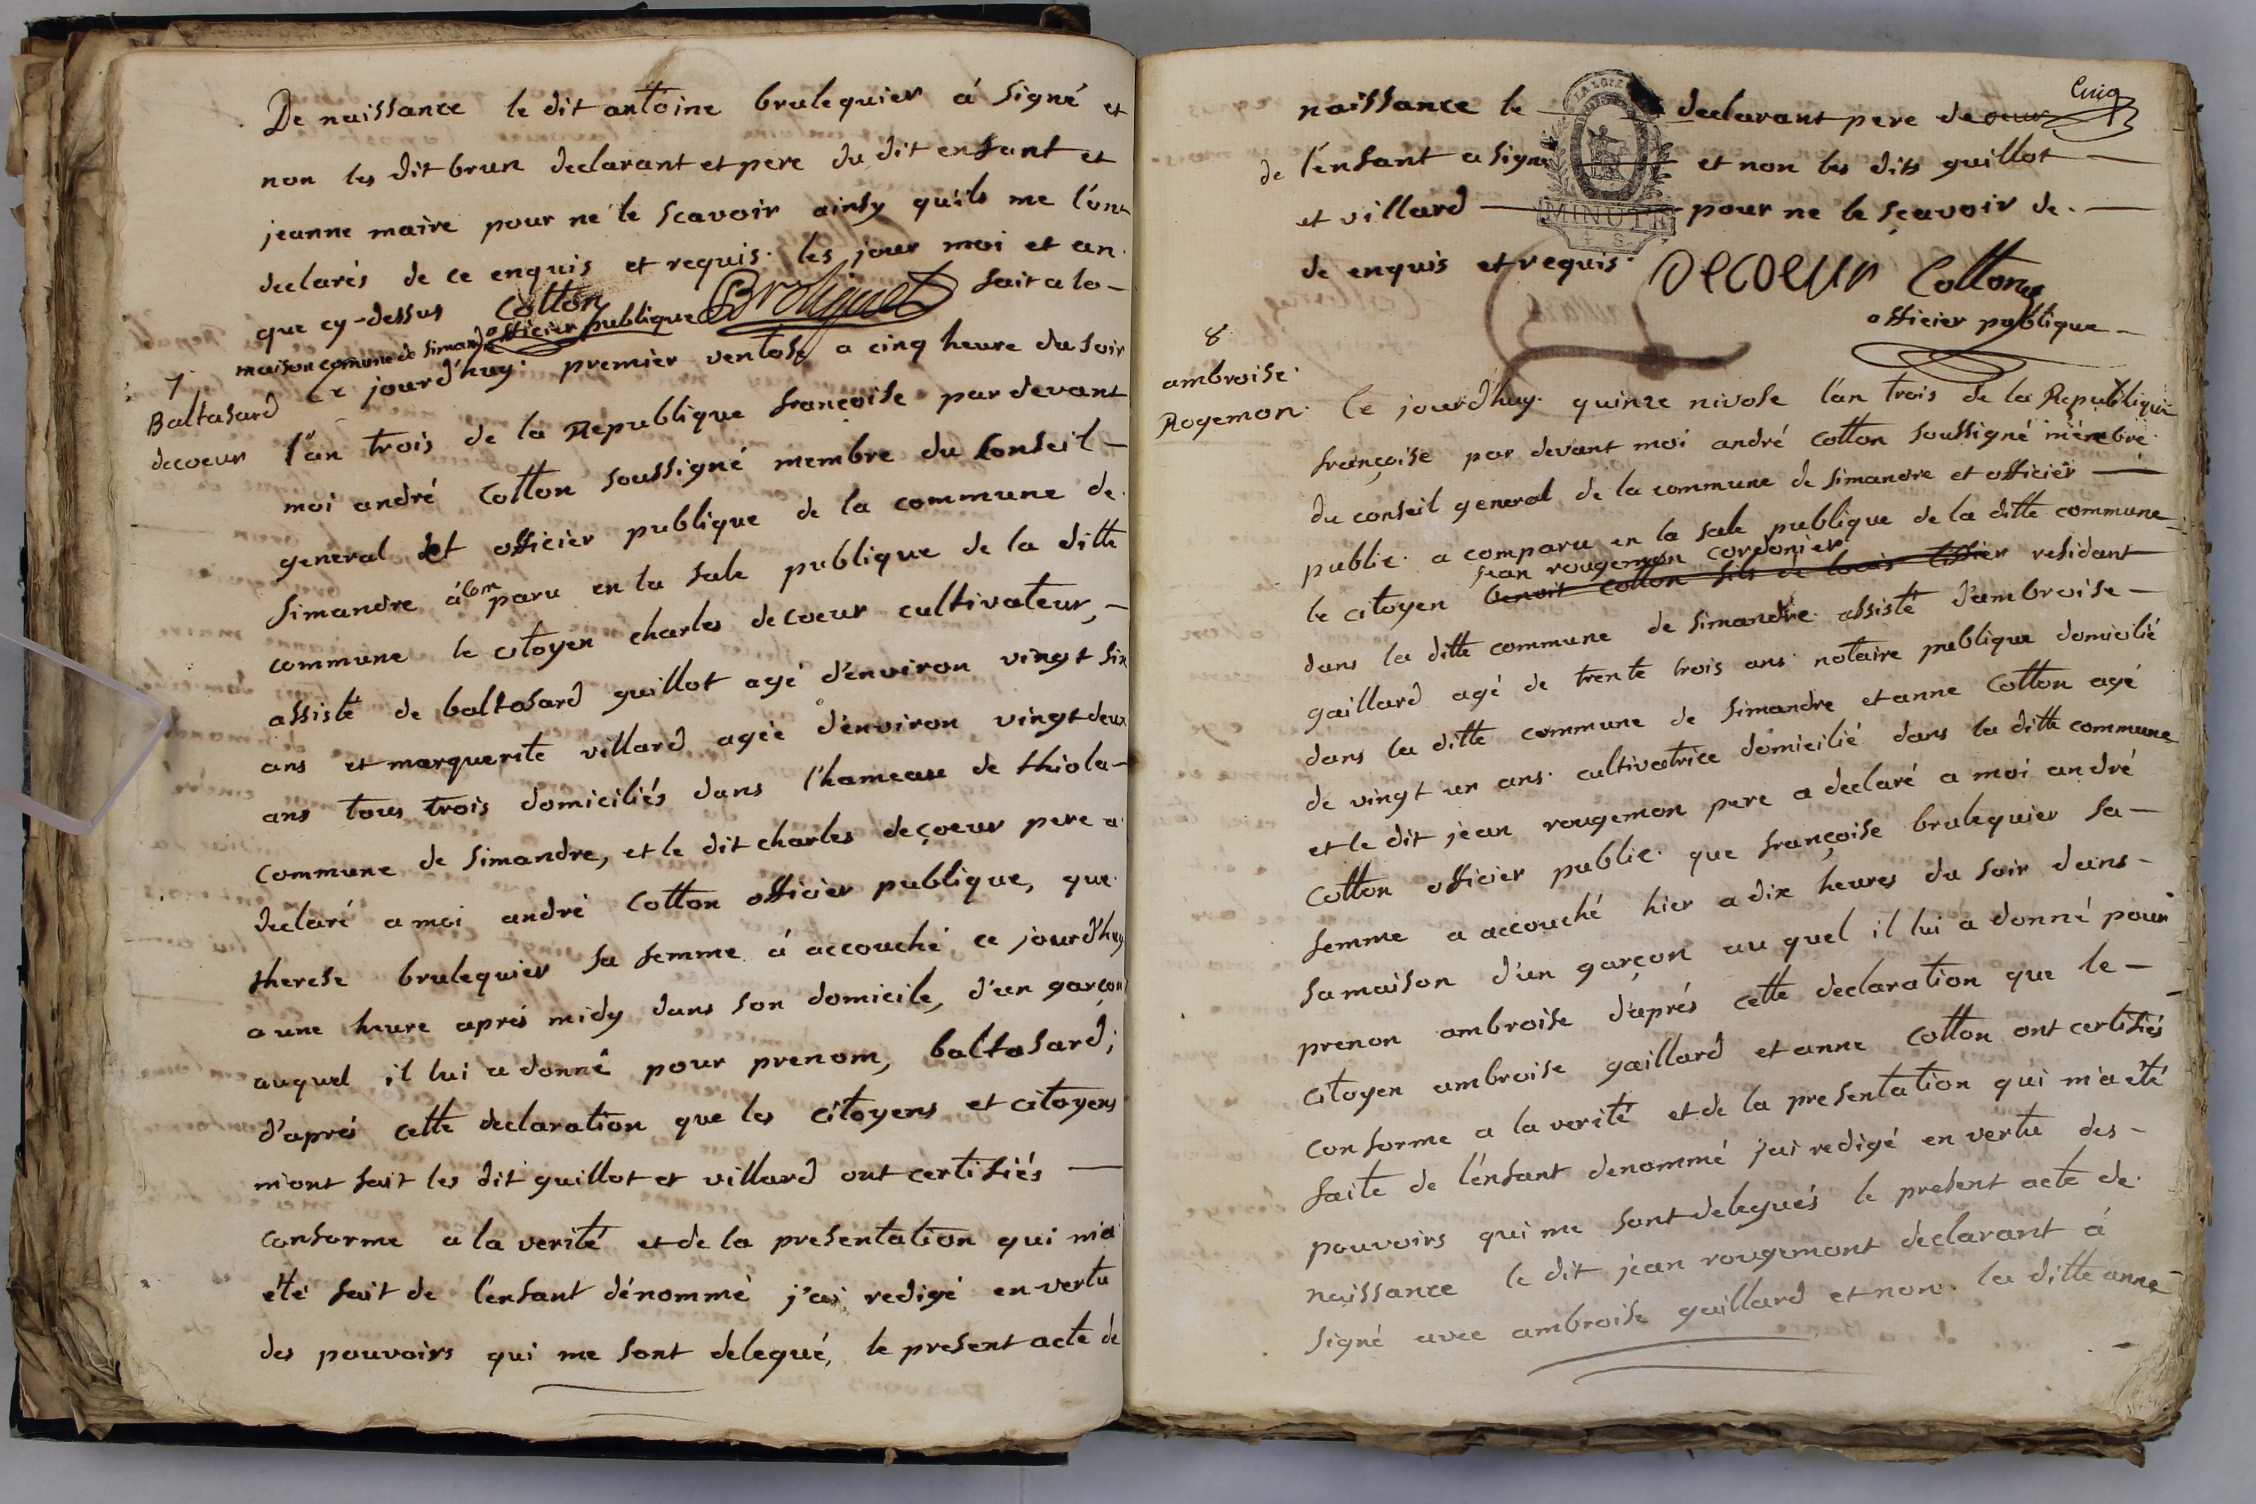 De naissance le dit antoine brulequier á signé et
non les dit brun declarant et pere du dit enfant et
jeanne maire pour ne le scavoir ainsy qu'ils me l'ont
declarés de ce enquis et requis. les jour moi et an.
que cy-dessus Cotton officier publique Broliquet fait a la-
maison comune de Simandre
7
Baltasard
decoeur
Ce jourd'huy. premier ventose a cinq heure du soir
l'an trois de la Republique françoise par devant
moi andré Cotton soussigné membre du Conseil -
general et officier publique de la commune de.
Simandre á comparu en la sale publique de la ditte
commune le citoyen charles decoeur cultivateur, -
assisté de baltasard guillot agé d'environ vingt six
ans et marguerite villard agée d'environ vingt deux
ans tous trois domiciliés dans l'hameau de thiola-
commune de Simandre, et le dit charles deçoeur pere a
declaré a moi andré Cotton officier publique, que.
therese brulequier sa femme á accouché ce jourd'huy
a une heure aprés midy dans son domicile, d'un garçon
auquel il lui a donné pour prenom, baltasard;
d'aprés cette declaration que les citoyens et citoyens
m'ont fait les dit guillot et villard ont certifiés -
conforme a la verité et de la presentation qui m'a
été fait de l'enfant dénommé j'ai redigé en vertu
des pouvoirs qui me sont delegué, le present acte de
Cinq
naissance le declarant pere decoeur
de l'enfant a signé et non les dits guillot -
et villard - pour ne le sçavoir de. -
MINUTE
de enquis et requis. DeCOEUR Cotton
officier publique -
8
ambroise.
Rogemon.
Ce jourd'huy. quinze nivose l'an trois de la Republique
françoise par devant moi andré Cotton soussigné membre
du conseil general de la commune de Simandre et officier -
public. a comparu en la sale publique de la ditte commune
jean rougemon cordonier
le citoyen benoit cotton fils de louis tissier residant
dans la ditte commune de Simandre. assisté d'ambroise -
gaillard agé de trente trois ans. notaire publique domicilié
dans la ditte commune de Simandre et anne Cotton agé
de vingt un ans. cultivatrice domicilié dans la ditte commune
et le dit jean rougemon pere a declaré a moi andré
Cotton officier public. que françoise brulequier sa -
femme a accouché hier a dix heures du soir dans -
sa maison d'un garçon au quel il lui a donné pour
prenon ambroise d'aprés cette declaration que le -
citoyen ambroise gaillard et anne Cotton ont certifiés
conforme a la verité et de la presentation qui m'a été
faite de l'enfant denommé j'ai redigé en vertu des -
pouvoirs qui me sont delegués le present acte de.
naissance le dit jean rougemont declarant á
signé avec ambroise gaillard et non. la ditte anne -